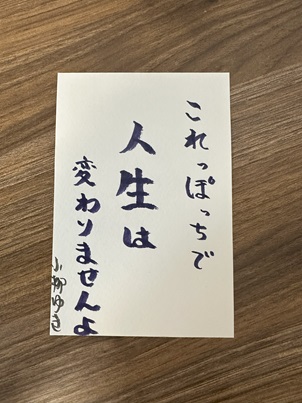 これっぽっちで
人生は
変わりませんよ
小柳ゆき